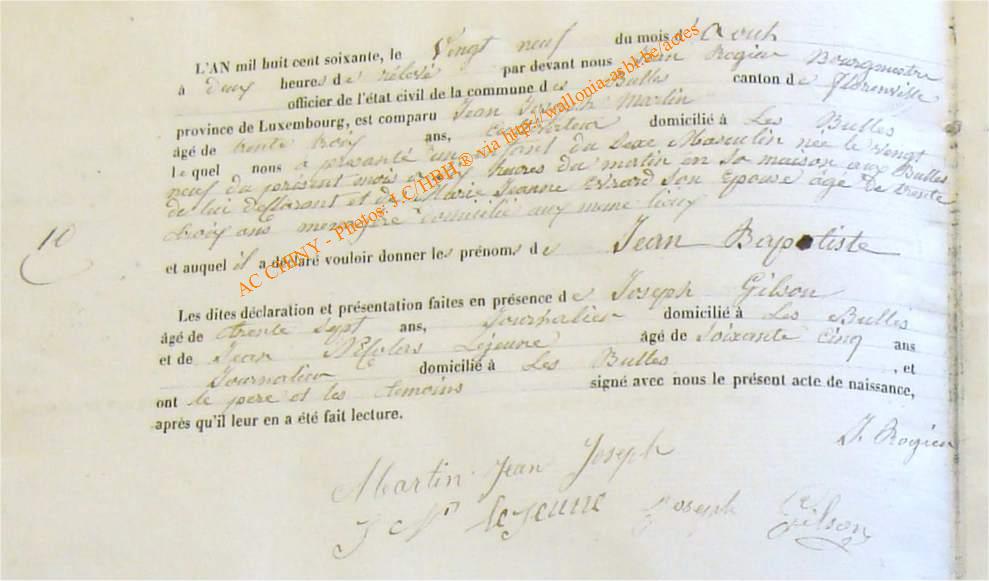 L'AN mil huit cent soixante, le Vingt neuf du mois d'Aout
à deux heures de rélevé par devant nous Jean Rogier Bourgmestre
officier de l'état civil de la commune des Bulles canton de Florenville
province de Luxembourg, est comparu Jean Joseph Martin
âgé de trente trois ans, cultivateur domicilié à Les Bulles
lequel nous a présanté un enfant du Sexe Masculin née le vingt
neuf du présent mois a heures du matin en Sa maison aux Bulles
de lui déclarant et de Marie Jeanne Evrard Son Epouse âgé de trente
trois ans menagère domicilié aux meme lieux
10
et auquel il a déclaré vouloir donner les prénoms de Jean Baptiste
Les dites déclaration et présentation faites en présence de Joseph Gilson
âgé de trente Sept ans, Journalier domicilié à Les Bulles
et de Jean Nicolas Lejeune âgé de Soixante Cinq ans
Journalier domicilié à Les Bulles , et
ont le père et les témoins signé avec nous le présent acte de naissance,
après qu'il leur en a été fait lecture.
J. Rogier
Martin Jean Joseph
J Ns leJeune Joseph Gilson
AC CHINY - Photos: J.C/HBH ® via http://wallonia-asbl.be/actes